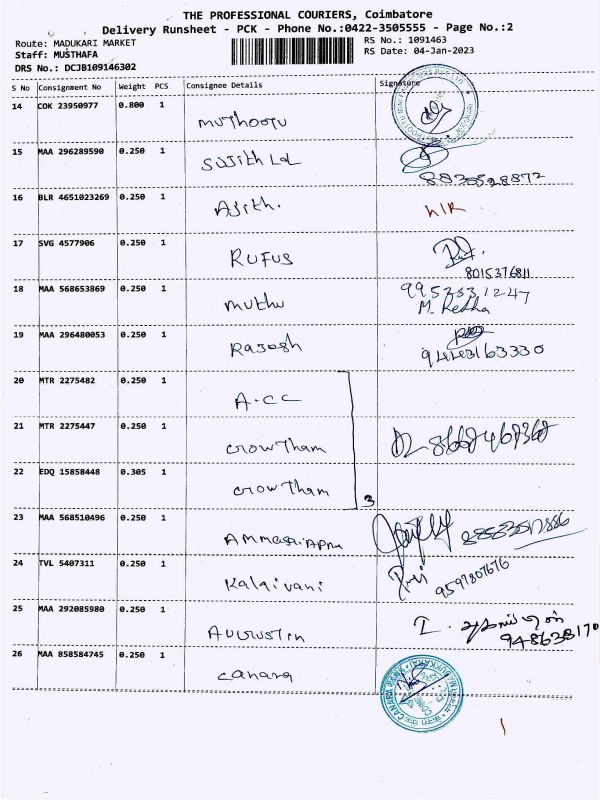 THE PROFESSIONAL COURIERS, Coimbatore
Delivery Runsheet - PCK - Phone No.:0422-3505555 - Page No.:2
Route: MADUKARI MARKET
RS No.: 1091463
Staff: MUSTHAFA
RS Date: 04-Jan-2023
DRS No.: DCJB109146302
S No Consignment No Weight PCS Consignee Details Signature
14 COK 23950977 0.800 1 Muthootu
15 MAA 296289590 0.250 1 Sujith Lal
16 BLR 4651023269 0.250 1 Ajith.
17 SVG 4577906 0.250 1 RUFUS
8015376811
18 MAA 568653869 0.250 1 Muthu
M. Rekha
19 MAA 296480053 0.250 1 Rajesh
9444163330
20 MTR 2275482 0.250 1 A.CC
21 MTR 2275447 0.250 1 Crowtham
22 EDQ 15858448 0.305 1 Crowtham
3
23 MAA 568510496 0.250 1
24 TVL 5407311 0.250 1 Kalaivani
9597807676
25 MAA 292085980 0.250 1 Augustin
26 MAA 858584745 0.250 1 Canara